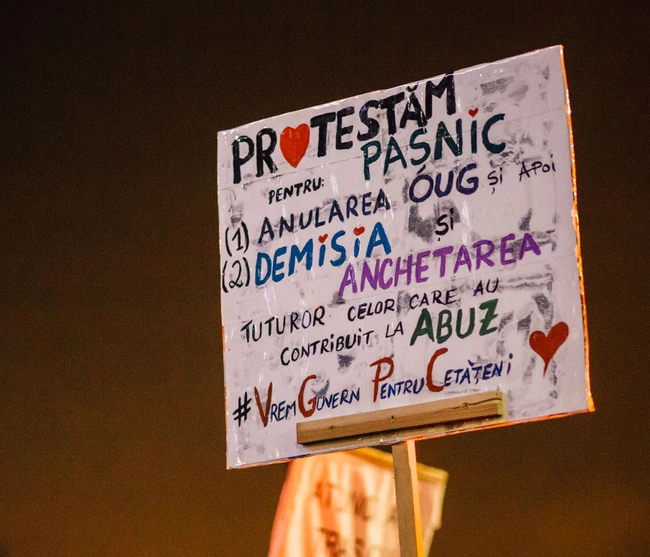 PROTESTĂM
PAȘNIC
PENTRU:
(1) ANULAREA OUG ȘI APOI
(2) DEMISIA ȘI
ANCHETAREA
TUTUROR CELOR CARE AU
CONTRIBUIT LA ABUZ
#VREM GUVERN PENTRU CETĂȚENI